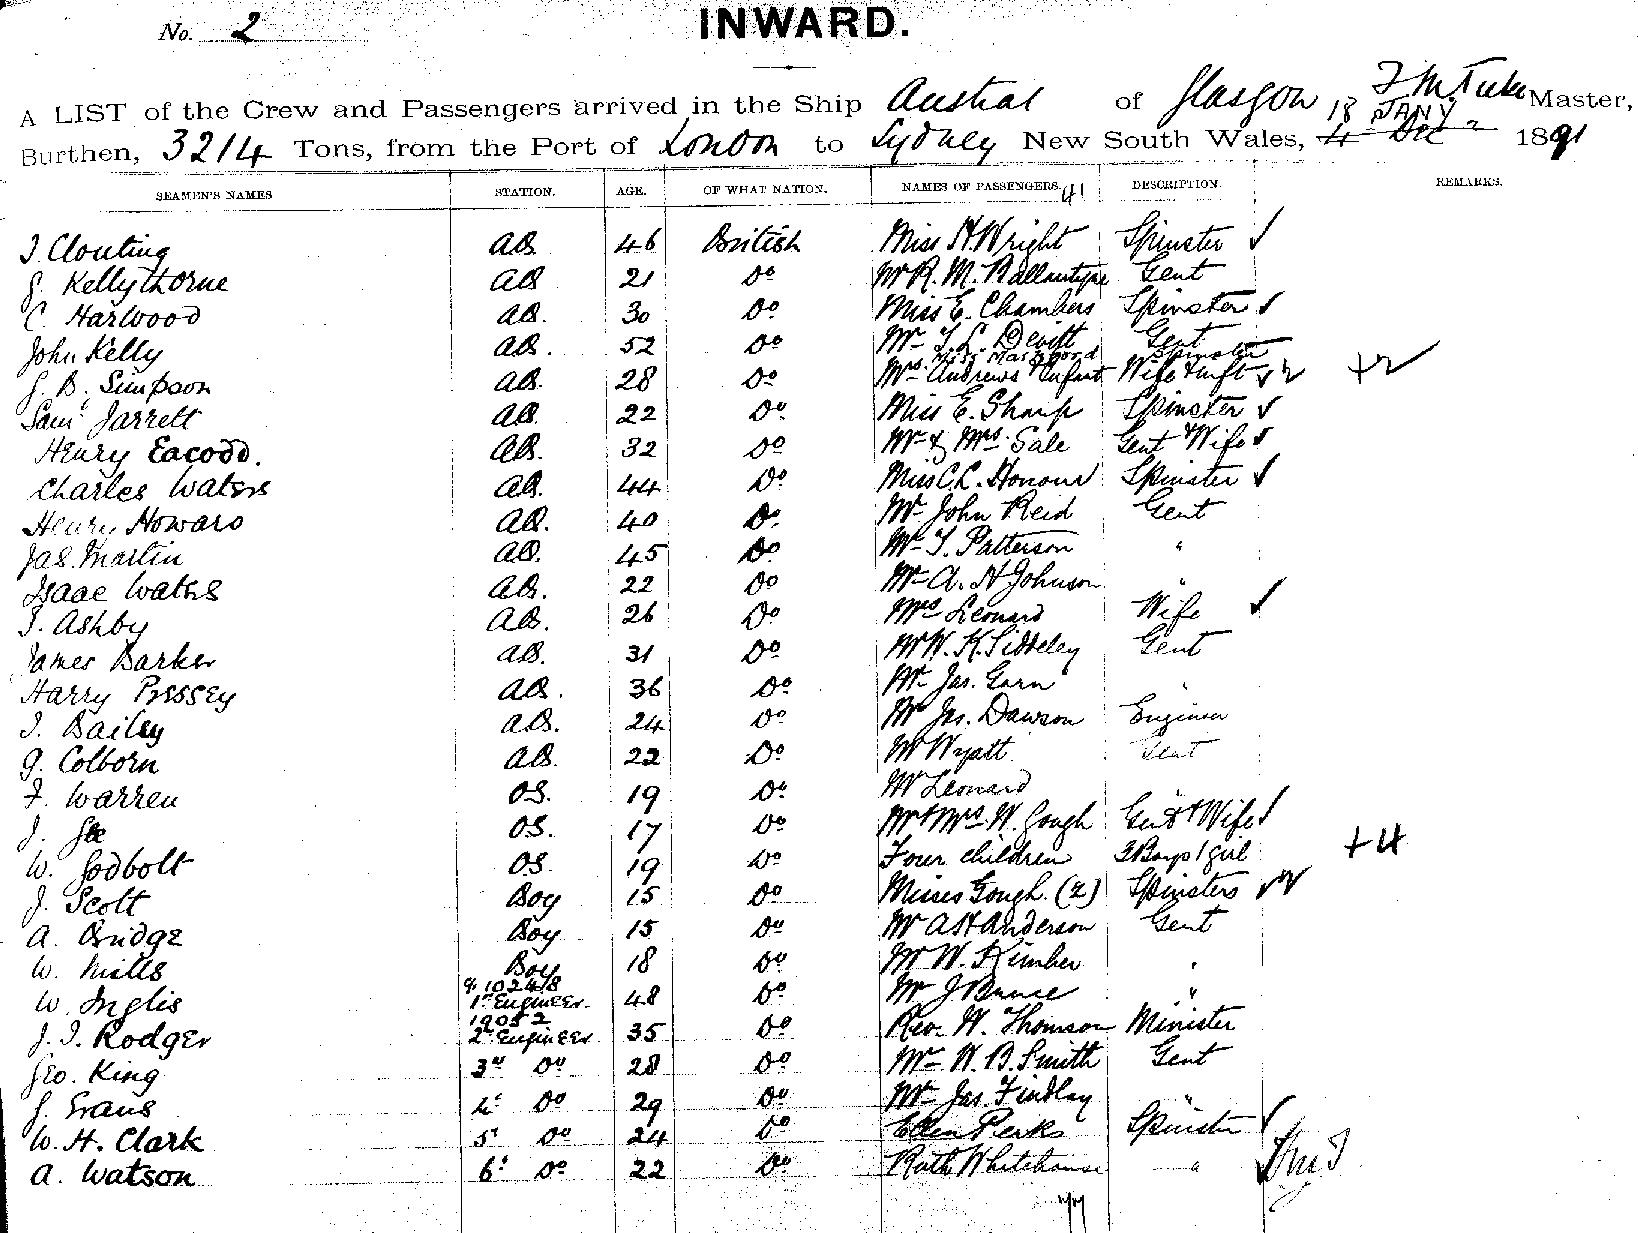 No. 2
INWARD.
A LIST of the Crew and Passengers arrived in the Ship Austral of Glasgow Master,
18 JANY
Burthen, 3214 Tons, from the Port of London to Sydney New South Wales, 4 Dec 1891
SEAMEN'S NAMES STATION. AGE. OF WHAT NATION. NAMES OF PASSENGERS. 41 DESCRIPTION. REMARKS.
J. Clouting AB 46 British Miss H Wright Spinster ✓
J. Kellythorne AB 21 Do Mr R. M. Ballantyne Gent
C. Harwood AB. 30 Do Miss E. Chambers Spinster ✓
John Kelly AB. 52 Do Mr T. L. Devitt Gent
Miss Spinster
J. B. Simpson AB. 28 Do Mrs Andrews & Infant Wife & inft ✓ ✓ +2 ✓
Saml Jarrett AB. 22 Do Miss E. Sharp Spinster ✓
Henry Eacodd. AB. 32 Do Mr & Mrs Sale Gent & Wife ✓
Charles Waters AB. 44 Do Miss C. L. Honour Spinster ✓
Henry Howard AB. 40 Do. Mr John Reid Gent
Jas. Martin AB. 45 Do Mr T. Patterson "
Isaac Watts AB. 22 Do Mr A. H Johnson "
J. Ashby AB. 26 Do Mrs Leonard Wife ✓
James Barker AB. 31 Do Mr W. H. Siddeley Gent
Harry Pussey AB. 36 Do Mr Jas. Garn "
J. Bailey AB. 24 Do Mr Jas. Dawson Engineer
G. Colborn AB. 22 Do Mr Wyatt Gent
F. Warren OS. 19 Do Mr Leonard "
J. OS. 17 Do Mr & Mrs W. Gough Gent & Wife ✓
W. Godbolt OS. 19 Do Four children 3 Boys 1 girl +4
J. Scott Boy 15 Do Misses Gough. (2) Spinsters ✓✓
A. Bridge Boy 15 Do Mr A H Anderson Gent
W. Mills Boy 18 Do Mr W. Kimber "
W. Inglis 1st Engineer. 48 Do Mr J Bunce "
19052
J. J. Rodger 2nd Engineer 35 Do Rev. W. Thomson Minister
Geo. King 3rd Do 28 Do Mr W. B. Smith Gent
J. Evans 4th Do 29 Do Mr Jas Findlay "
W. H. Clark 5th Do 24 Do Ellen Perks Spinster ✓
A. Watson 6th Do 22 Do Ruth Whitehouse "